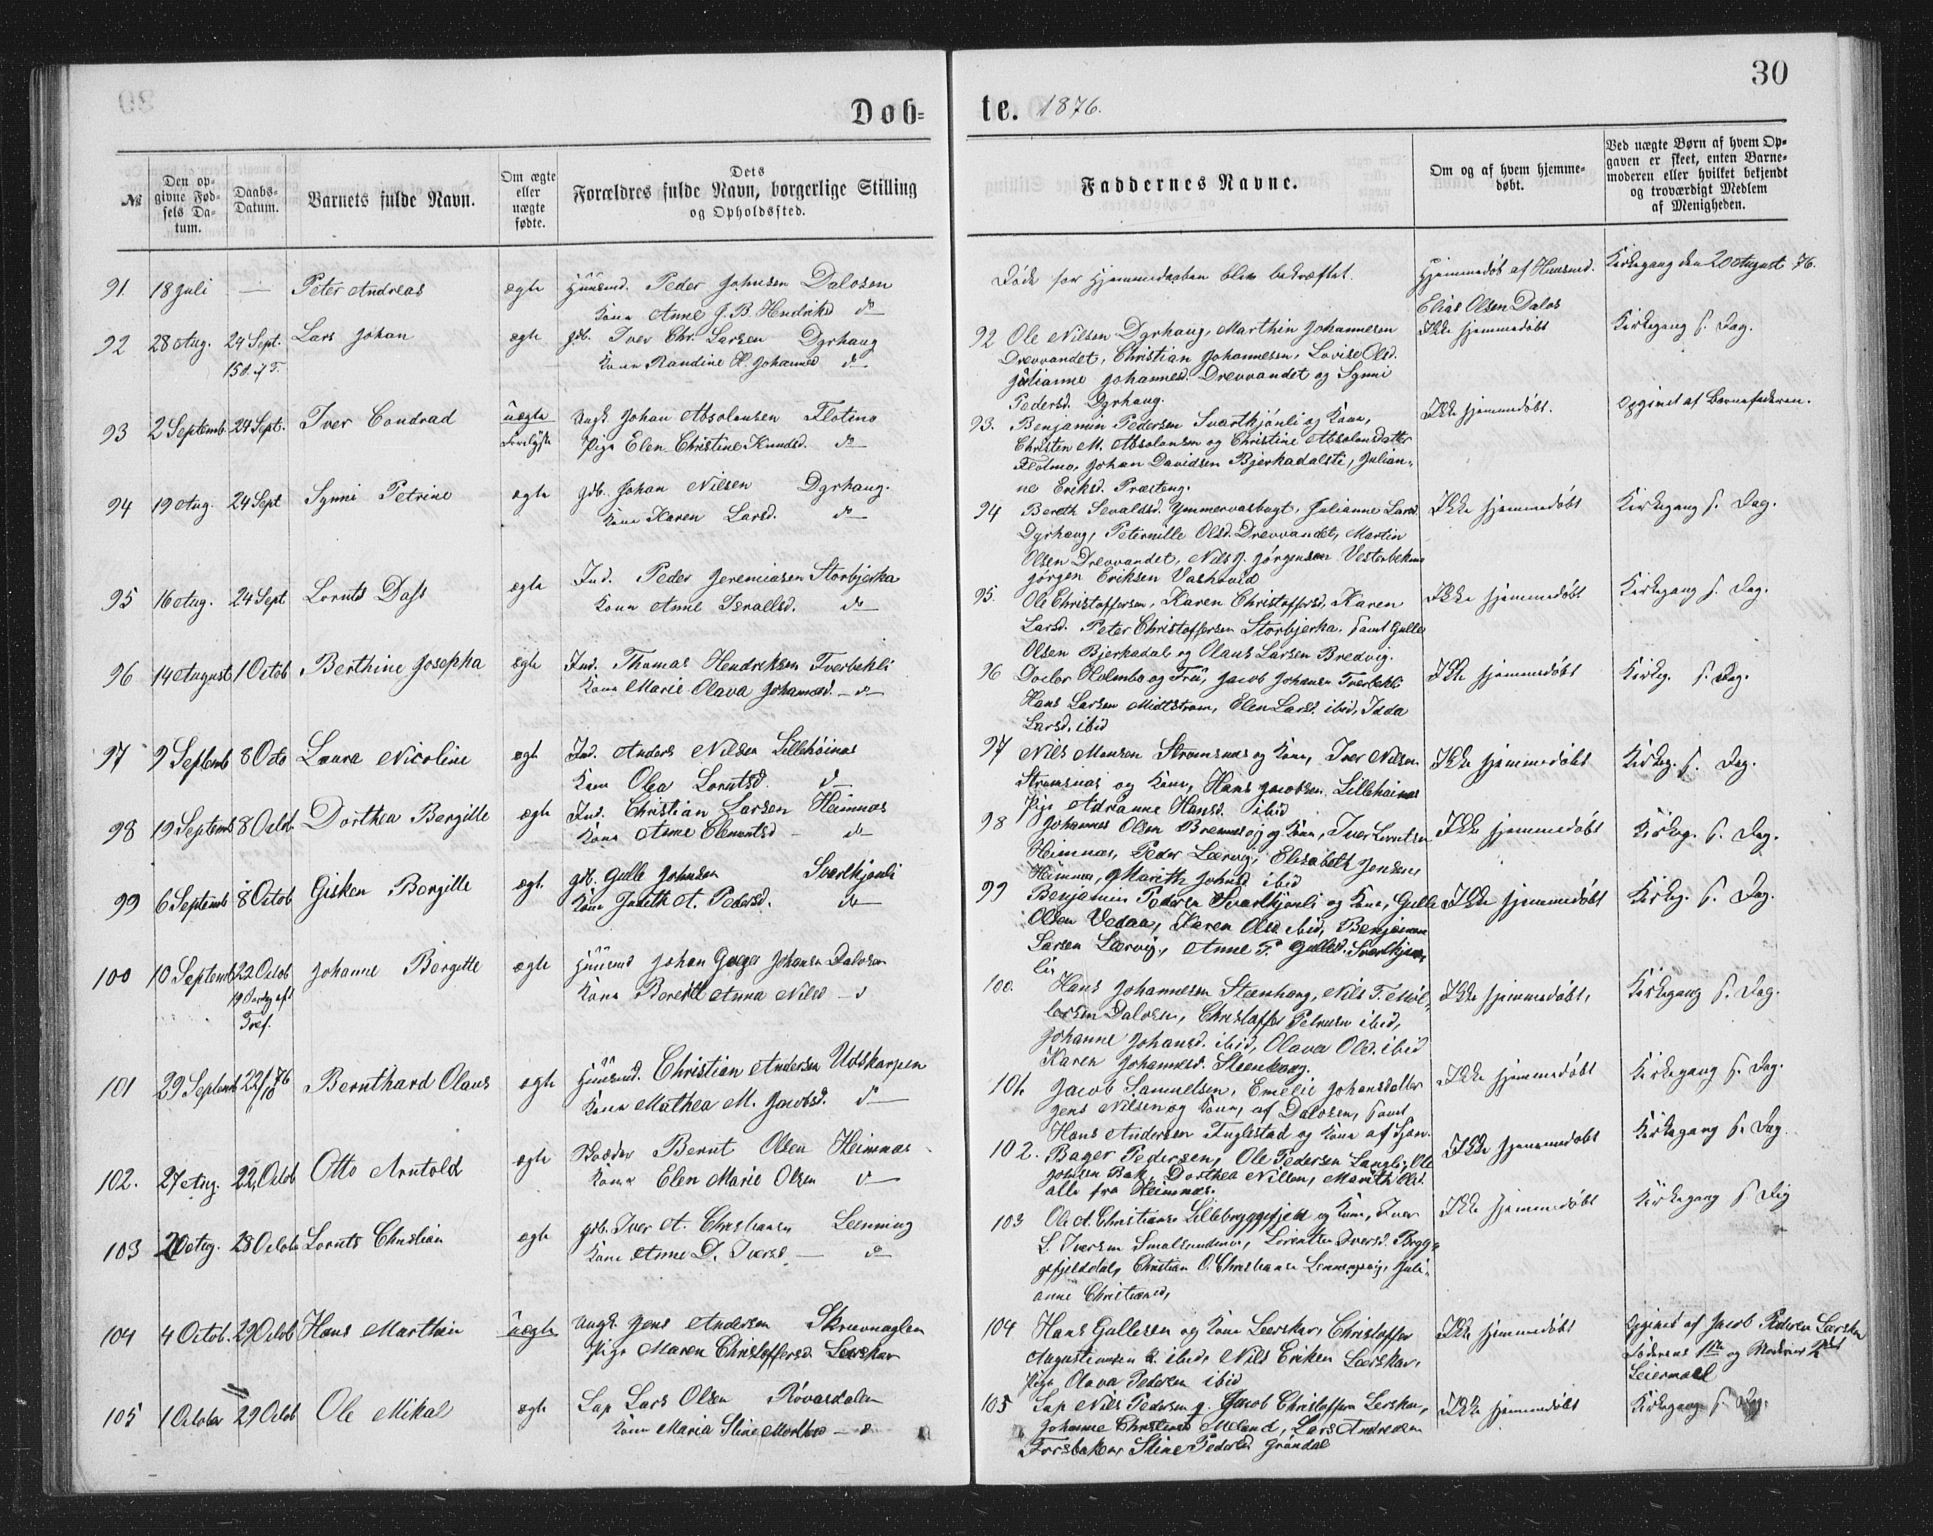 30
Døb=
te. 1876.
№
Den opgivne Fødsels Datum.
Daabs-Datum.
Barnets fulde Navn.
Om ægte eller uægte fødte.
Dets Forældres fulde Navn, borgerlige Stilling og Opholdssted.
Faddernes Navne.
Om og af hvem hjemmedøbt.
Ved uægte Børn af hvem Opgaven er skeet, enten Barnemoderen eller hvilket bekjendt og troværdigt Medlem af Menigheden.
91. 18 Juli — Peter Andreas ægte Huusmd. Peder Johnsen Dalosen
Kone Anne J. B. Hendriksd do
Døde før Hjemmedaaben blev bekræftet.
Hjemmedøbt af Huusmd. Elias Olsen Dalos
Kirkegang den 20 August 76.
92 28 Aug. 24 Sept. Lars Johan ægte gdb. Iver Chr. Larsen Dyrhaug
Kone Randine H. Johannesd do
92 Ole Nilsen Dyrhaug, Marthin Johannesen
Drevvandet, Christian Johannesen, Lovise Olsd.
Julianne Johannesd. Drevvandet og Synni
Pedersd. Dyrhaug.
Ikke hjemmedøbt
Kirkegang s. Dag.
93 2 Septemb. 24 Sept. Iver Conrad uægte Ungk. Johan Absolonsen Flotmo
Pige Elen Christine Knudsd. do
93. Benjamin Pedersen Svartkjønli og Kone,
Christen M. Absolonsen og Christine Absolonsdatter
Flotmo, Johan Davidsen Bjerkadalsli, Julian-
ne Eriksd. Præsteng.
Ikke hjemmedøbt.
Opgivet af Barnefaderen.
94 19 Aug. 24 Sept Synni Petrine ægte gdb. Johan Nilsen Dyrhaug.
Kone Karen Larsd. do
94 Bereth Sevaldsd. Ymmervasbugt, Julianne Larsd.
Dyrhaug, Peternille Olsd. Drevvandet, Martin
Olsen Drevvandet, Nils J. Jørgensen Vesterbekmo
Jørgen Eriksen Vashovid
Ikke hjemmedøbt
Kirkegang s. Dag.
95 16 Aug. 24 Sept Loruts Dass ægte Ind. Peder Jeremiasen Storbjerka
Kone Anne Israelsd. do
95. Ole Christoffersen, Karen Christoffersd, Karen
Larsd. Peter Christoffersen Storbjerka, samt Gulle
Olsen Bjerkadal og Olaus Larsen Bredvig.
Ikke hjemmedøbt
Kirkegang s. Dag.
96 14 August 1 Octob Berthine Josepha ægte Ind. Thomas Hendriksen Tverbekli
Kone Marie Olava Johannesd. do
96 Doctor Holmbo og Frü, Jacob Johansen Tverbekli
Hans Larsen Midtstrøm, Elen Larsd. ibid, Idda
Larsd. ibid
Ikke hjemmedøbt
Kirkeg. s. Dag.
97 9 Septemb 8 Octo Laura Nicoline ægte Ind. Anders Nilsen Lillehöinæs
Kone Olea Lorntsd. do
97 Nils Monsen Strømsnæs og Kone, Iver Nilsen
Strømsnæs og Kone, Hans Jacobsen Lillehøinæs
Pige Adrianne Hansd. ibid
Ikke hjemmedøbt
Kirkeg. s. Dag.
98 19 Septemb 8 Octob Dorthea Bergitte ægte Ind. Christian Larsen Heimnæs
Kone Anne Clemetsd do
98 Johannes Olsen Bremnes og Kone, Iver Lorntsen
Heimnæs, Peder Lærvig, Elisabeth Jensen,
Heimnæs, Marith Johnsd ibid
Ikke hjemmedøbt
Kirkeg. s. Dag.
99 6 Septemb 8 Octob Gisken Bergitte ægt. gdb. Gulle Johnsen Svartkjønli
Kone Judith A. Pedersd. do
99 Benjamin Pedersen Svartkjønli og Kone, Gulle
Olsen Vedaa, Karen Olsd ibid, Benjamin
Larsen Lærvig, Anne P. Gullesd. Svartkjøn-
li
Ikke hjemmedøbt
Kirkeg. s. Dag.
100 10 Septemb 22 Octob Johanne Bergitte ægte Huusmd Johan Johansen Dalosen
Kone Bereth Anna Nilsd do
100. Hans Johannesen Steenhaug, Nils T.
Dalosen, Christoffer Petersen ibid,
Johanne Johansd. ibid, Olava Olsd. ibid
Karen Johannesd. Steenhaug.
Ikke hjemmedøbt,
Kirkegang s. Dag.
101 29 Septemb 22/10 76 Bernthard Olaus ægte Huusmd. Christian Andersen Udskarpen
Kone Mathea M. Jacobsd. do
101. Jacob Samuelsen, Emelie Johansdatter
Jens Nilsen og Kone, af Dalosen, samt
Hans Andersen Fuglestad og Kone af
Ikke hjemmedøbt
Kirkegang s. Dag.
102. 27 Aug. 22 Octob Otto Arntold ægte Bernt Olsen Heimnæs
Kone Elen Marie Olsen do
102. Bager Pedersen, Ole Pedersen Langli, Ole
Johnsen Bak, Dorthea Nilsen, Marith Olsd.
alle fra Heimnæs.
Ikke hjemmedøbt
Kirkegang s. Dag
103 20 Aug. 28 Octob Loruts Christian ægte gdb. Iver A. Christiansen Lenning
Kone Anne D. Iversd do
103 Ole A. Christians Lillebryggefjeld og Kone, Iver
L. Iversen Smalsundmo, Lorentse Iversd. Brygg-
efjelddal, Christian O. Christiansen Lenningsvig, Juli-
anne Christiansd,
Ikke hjemmedøbt
Kirkegang s. Dag
104 4 Octob. 29 Octob Hans Marthin uægte Ungk. Jens Andersen Skravnaglen
Pige Maren Christoffersd Leerskar
104 Hans Gullesen og Kone Leerskar, Christoffer
Augustinusen ibid, Nils Eriksen Lærskar,
Pige Olava Pedersen ibid
Ikke hjemmedøbt
Opgivet af Jacob Pedersen Lærskar
Faderens 1ste og Moderens 2det
Leiermaal
105 1 October 29 Octob Ole Mikal ægte Lap Lars Olsen Røvasdalen
Kone Maria Stine Mortensd do
105 Lap Nils Pedersen og Jacob Christoffersen Lerskar,
Johanne Christensd Meland, Lars Andersen
Forsbakken Stine Pedersd Grøndal
Ikke hjemmedøbt
Kirkegang s. Dag.